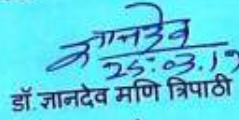 ज्ञानदेव
25.03.19
डॉ. ज्ञानदेव मणि त्रिपाठी